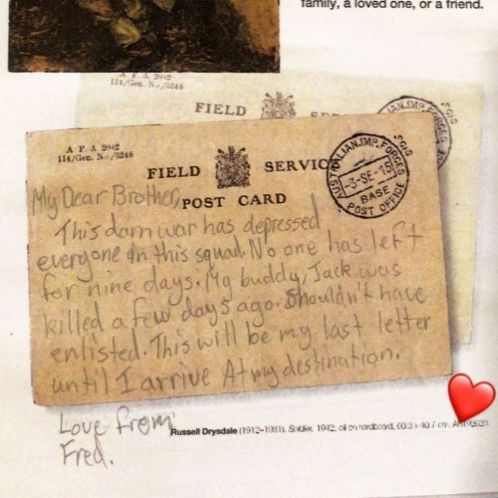 family, a loved one, or a friend.
FIELD
A F A 2042
FIELD SERVICE
POST CARD
AUSTRALIAN.IMP.FORCES
3-SE-15
BASE
POST OFFICE
My Dear Brother,
This damwar has depressed
everyone in this squad. No one has left
for nine days. My buddy, Jack was
killed a few days ago. Shouldn't have
enlisted. This will be my last letter
until I arrive At my destination.
Love from
Fred.
Russell Drysdale (1912-1981), Soldier, 1942, oil on hardboard, 60.3 x 40.7 cm,